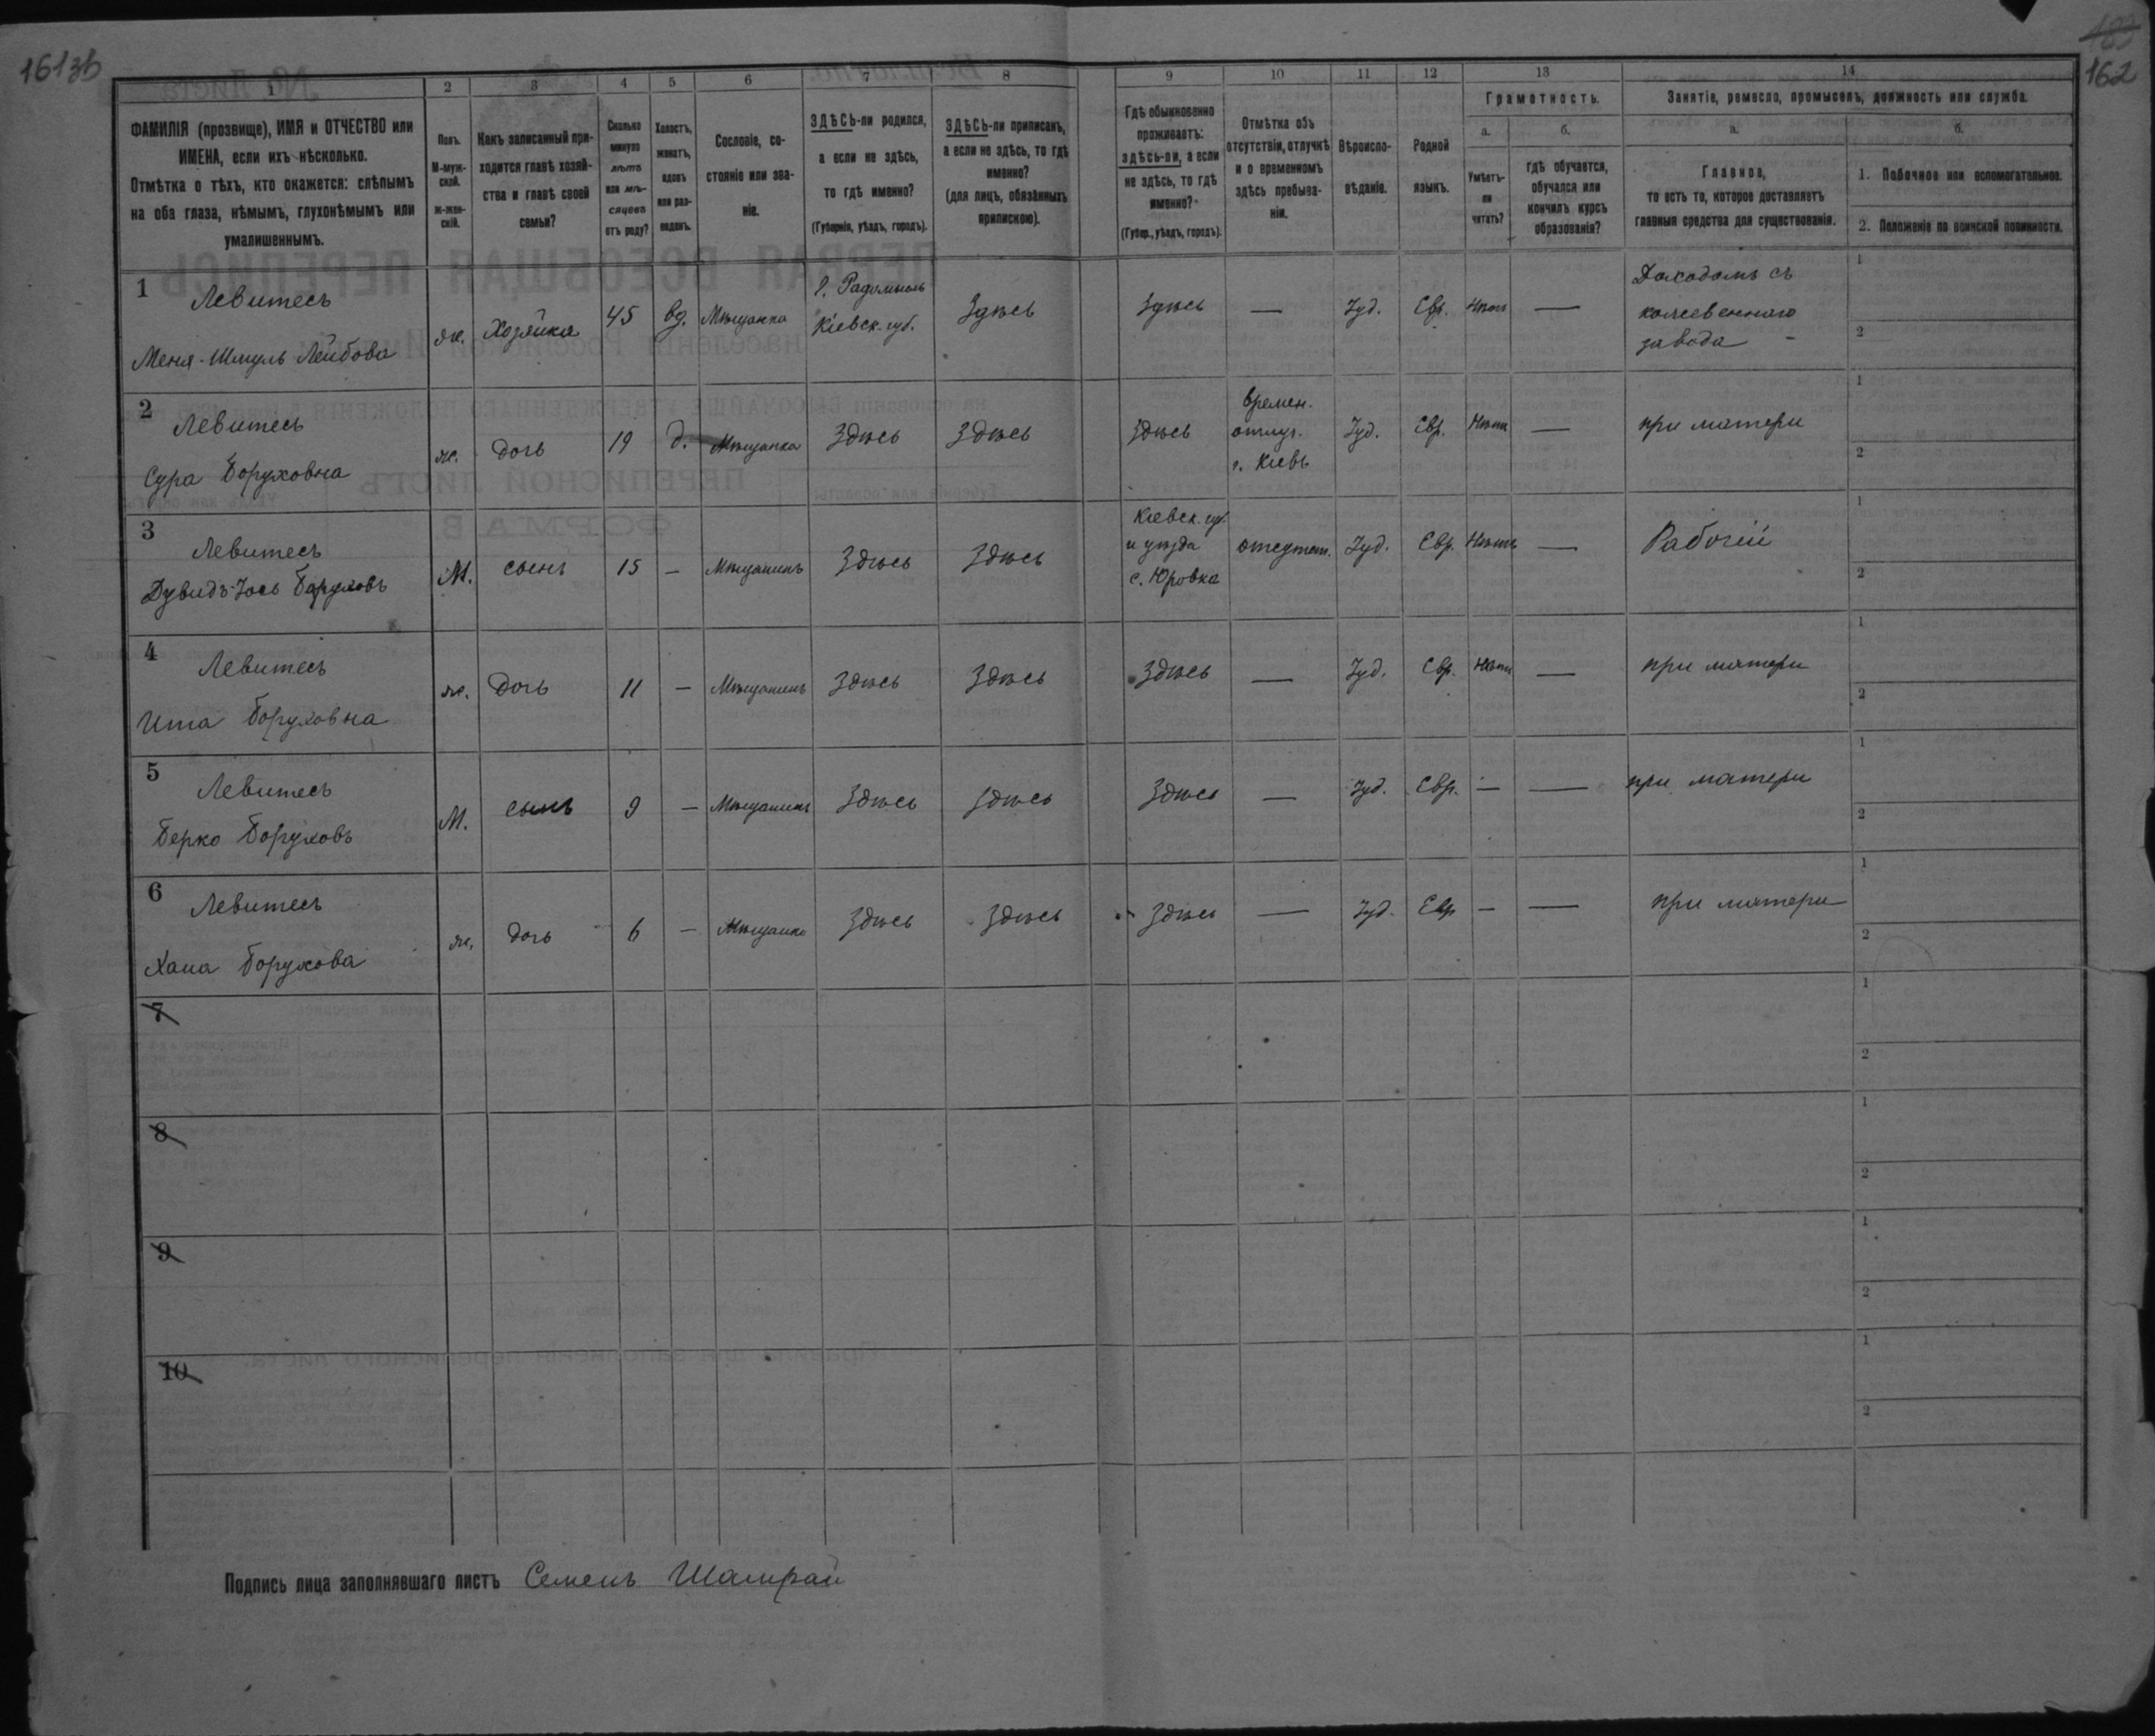 162
1 2 3 4 5 6 7 8 9 10 11 12 13 14
ФАМИЛІЯ (прозвище), ИМЯ и ОТЧЕСТВО или
ИМЕНА, если ихъ нѣсколько.
Отмѣтка о тѣхъ, кто окажется: слѣпымъ
на оба глаза, нѣмымъ, глухонѣмымъ или
умалишеннымъ.
Полъ.
М-муж-
ской.
ж-жен-
скій.
Какъ записанный при-
ходится главѣ хозяй-
ства и главѣ своей
семьи?
Сколько
минуло
лѣтъ
или мѣ-
сяцевъ
отъ роду?
Холостъ,
женатъ,
вдовъ
или раз-
веденъ.
Сословіе, со-
стояніе или зва-
ніе.
ЗДѢСЬ-ли родился,
а если не здѣсь,
то гдѣ именно?
(Губернія, уѣздъ, городъ).
ЗДѢСЬ-ли приписанъ,
а если не здѣсь, то гдѣ
именно?
(для лицъ, обязанныхъ
припискою).
Гдѣ обыкновенно
проживаетъ:
здѣсь-ли, а если
не здѣсь, то гдѣ
именно?
(Губер., уѣздъ, городъ).
Отмѣтка объ
отсутствіи, отлучкѣ
и о временномъ
здѣсь пребыва-
ніи.
Вѣроиспо-
вѣданіе.
Родной
языкъ.
Грамотность.
а.
Умѣетъ-
ли
читать?
б.
гдѣ обучается,
обучался или
кончилъ курсъ
образованія?
Занятіе, ремесло, промыселъ, должность или служба.
а.
Главное,
то есть то, которое доставляетъ
главныя средства для существованія.
б.
1. Побочное или вспомогательное.
2. Положеніе по воинской повинности.
1
Левитесъ
Меня-Шмуль Лейбова
ж.
Хозяйка
45
вд.
Мѣщанка
г. Радомысль
Кіевск. губ.
Здѣсь
Здѣсь
—
Іуд.
Евр.
Нѣтъ
—
Доходомъ съ
кожевеннаго
завода
1
2
2
Левитесъ
Сура Боруховна
ж.
дочь
19
д.
Мѣщанка
Здѣсь
Здѣсь
Здѣсь
времен.
отлуч.
г. Кіевъ
Іуд.
Евр.
Нѣтъ
—
при матери
1
2
3
Левитесъ
Дувидъ-Іось Боруховъ
М.
сынъ
15
—
Мѣщанинъ
Здѣсь
Здѣсь
Кіевск. губ.
и уѣзда
с. Юровка
отсутст.
Іуд.
Евр.
Нѣтъ
—
Рабочій
1
2
4
Левитесъ
Ита Боруховна
ж.
дочь
11
—
Мѣщанинъ
Здѣсь
Здѣсь
Здѣсь
—
Іуд.
Евр.
Нѣтъ
—
при матери
1
2
5
Левитесъ
Берко Боруховъ
М.
сынъ
9
—
Мѣщанинъ
Здѣсь
Здѣсь
Здѣсь
—
Іуд.
Евр.
—
—
при матери
1
2
6
Левитесъ
Хана Борухова
ж.
дочь
6
—
Мѣщанка
Здѣсь
Здѣсь
Здѣсь
—
Іуд.
Евр
—
—
при матери
1
2
7
1
2
8
1
2
9
1
2
10
1
2
Подпись лица заполнявшаго листъ Семенъ Шамрай